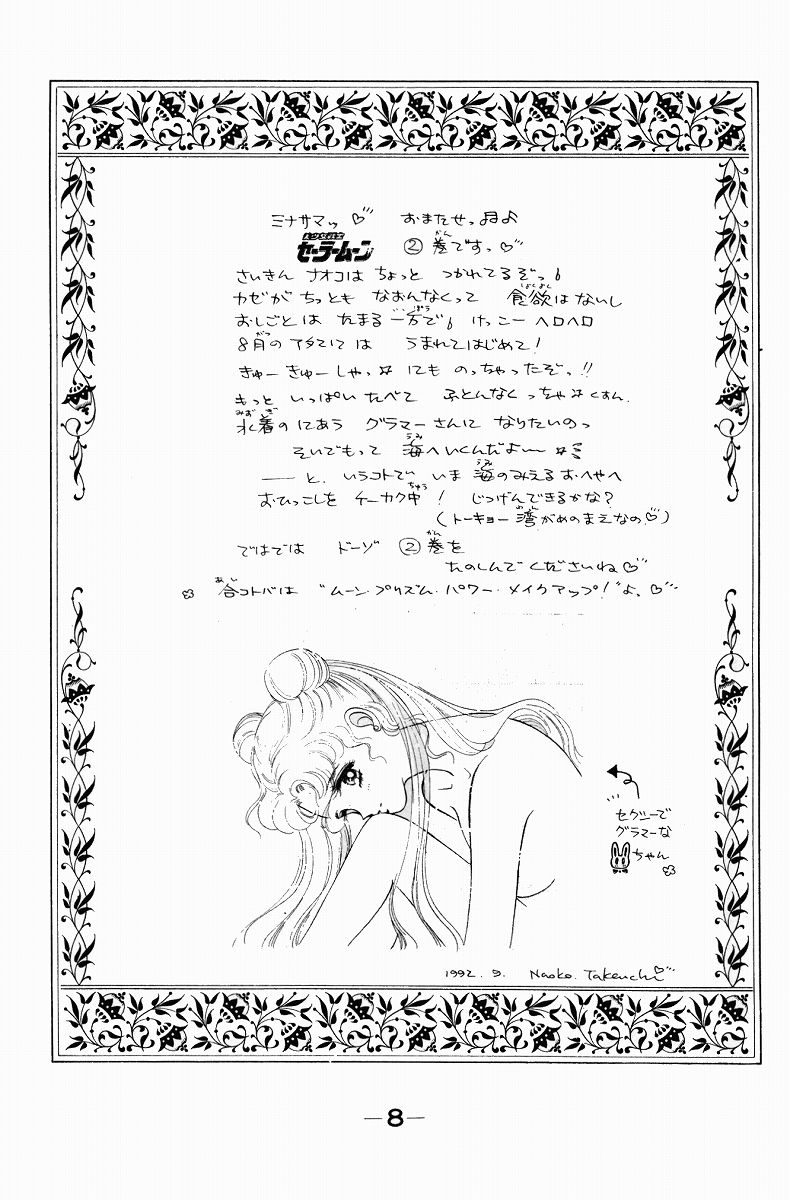 ミナサマッ♡ おまたせっ♬♪
美少女戦士セーラームーン ②巻ですっ♡
さいきん ナオコは ちょっと つかれてるぞっ
カゼが ちっとも なおんなくって 食欲はないし
おしごとは たまる一方で けっこーヘロヘロ
8月の アタマには うまれてはじめて!
きゅーきゅーしゃっ☆にも のっちゃったぞっ!!
もっと いっぱい たべて ふとんなくっちゃ☆くすん.
水着の にあう グラマーさんに なりたいのっ
そいでもって 海へいくんだよ〜☆
――と、いうコトで いま 海のみえるおへやへ
おひっこしを チーカク中! じつげんできるかな?
(トーキョー湾がめのまえなの♡)
ではでは ドーゾ ②巻を
たのしんでくださいね♡
合コトバは "ムーン・プリズム・パワー・メイクアップ!"よ、♡
セクシーで
グラマーな
ちゃん
1992.9. Naoko.Takeuchi♡
—8—